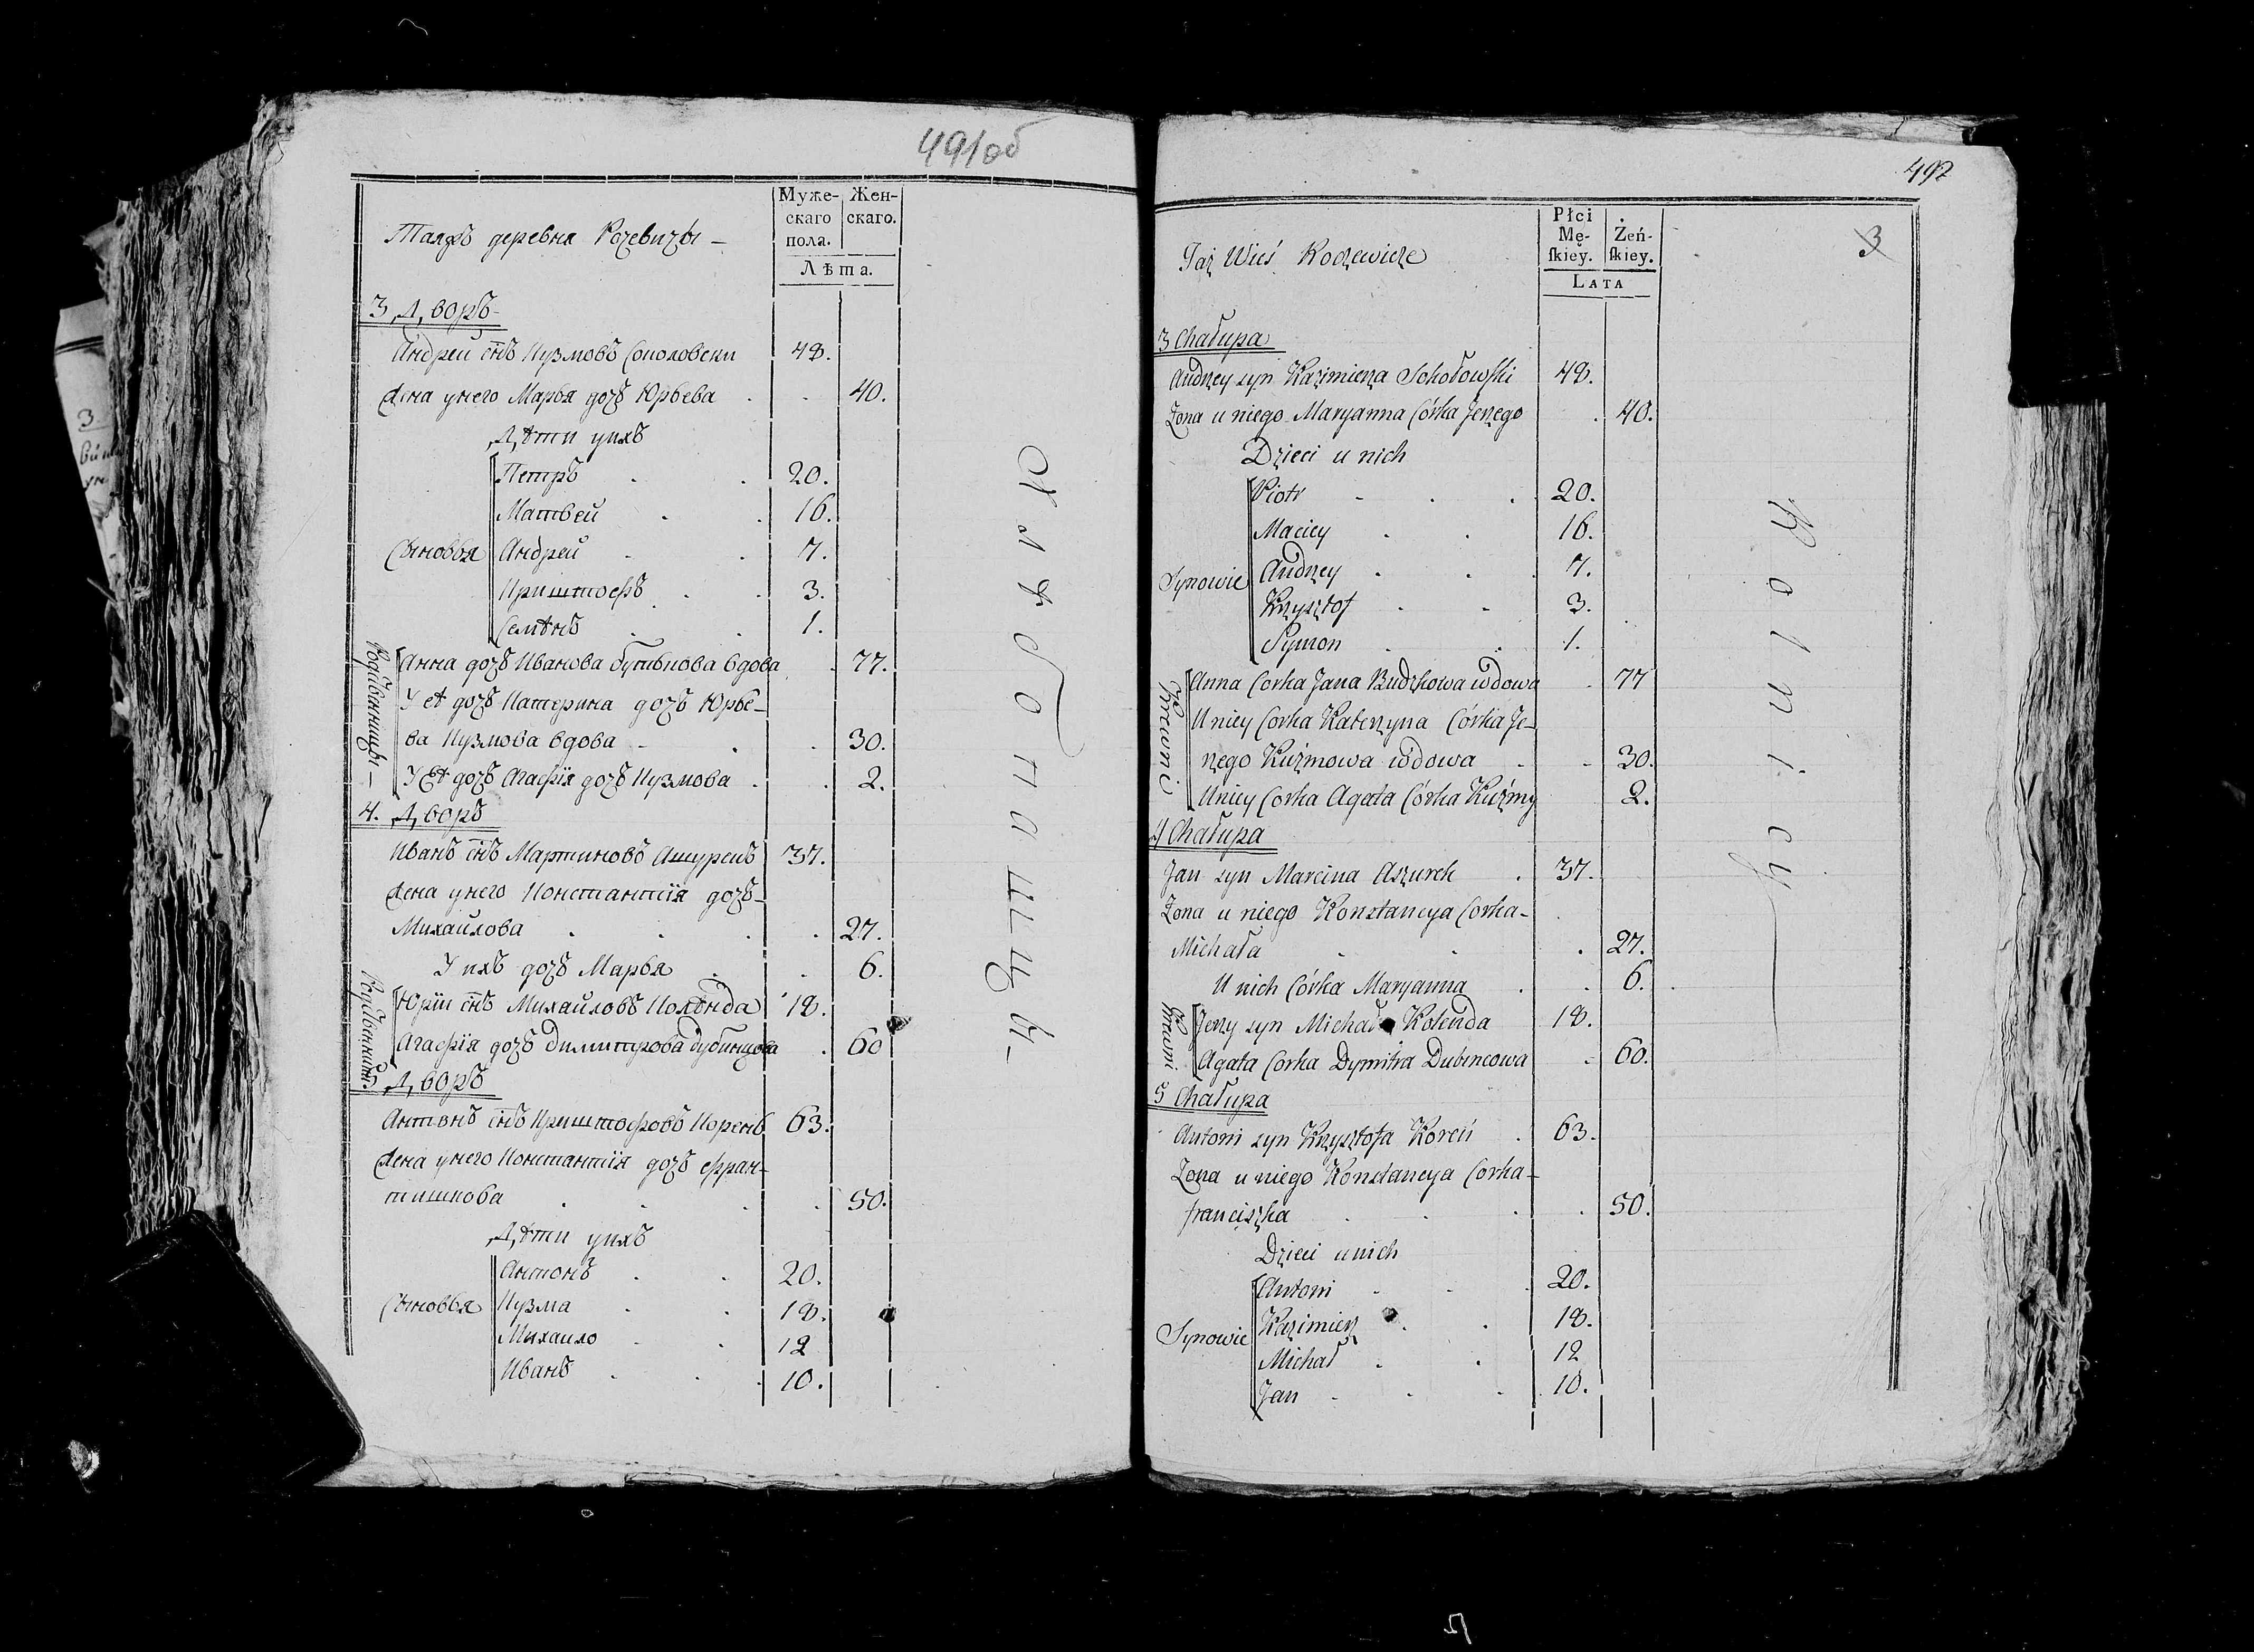 491об
Таяжъ деревня Кочевичы —
Муже-
скаго
пола.
Жен-
скаго.
Лѣта.
3 Дворъ
Андрей сн̃ъ Кузмовъ Соколовски 48.
Жена унего Марья дочь Юрьева 40.
Дѣти унихъ
Сыновья
Петръ 20.
Матвей 16.
Андрей 7.
Криштофъ 3.
Семѣнъ 1.
Родственницы —
Анна дочь Иванова Будзькова вдова 77.
У её дочь Катерина дочь Юрье-
ва Кузмова вдова 30.
У её дочь Агафія дочь Кузмова 2.
4. Дворъ
Иванъ сн̃ъ Мартиновъ Ашурекъ 37.
Жена унего Константія дочь
Михайлова 27.
У ихъ дочь Марья 6.
Родственники
Юріи сн̃ъ Михайловъ Колѣнда 18.
Агафія дочь Димитрова Дубинцова 60
5. Дворъ
Антонъ сн̃ъ Криштофовъ Корень 63.
Жена унего Константія дочь Фран-
тишкова 50.
Дѣти унихъ
Сыновья
Антонъ 20.
Кузма 18.
Михаило 12
Иванъ 10.
Хлѣбопашцы —
492
3
Taż Wieś Koczewicze
Płci
Mę-
ſkiey.
Żeń-
ſkiey.
Lata
3 Chałupa
Andrzey syn Kazimierza Sokołowski 48.
Żona u niego Maryanna Córka Jerzego 40.
Dzieci u nich
Synowie
Piotr 20.
Maciey 16.
Andrzey 7.
Krzysztof 3.
Symon 1.
Krewni
Anna Corka Jana Budzkowa wdowa 77
U niey Corka Katerzyna Córka Je-
rzego Kuźmowa wdowa 30.
U niey Corka Agata Córka Kuźmy 2.
4 Chałupa
Jan syn Marcina Aszurek 37.
Żona u niego Konstancya Corka-
Michała 27.
U nich Córka Maryanna 6.
Krewni
Jerzy syn Michała Kolenda 18.
Agata Corka Dymitra Dubincowa 60.
5 Chałupa
Antoni syn Krzysztofa Koreń 63.
Żona u niego Konstancya Corka-
franciszka 50.
Dzieci u nich
Synowie
Antoni 20.
Kazimierz 18.
Michał 12
Jan 10.
Rolnicy